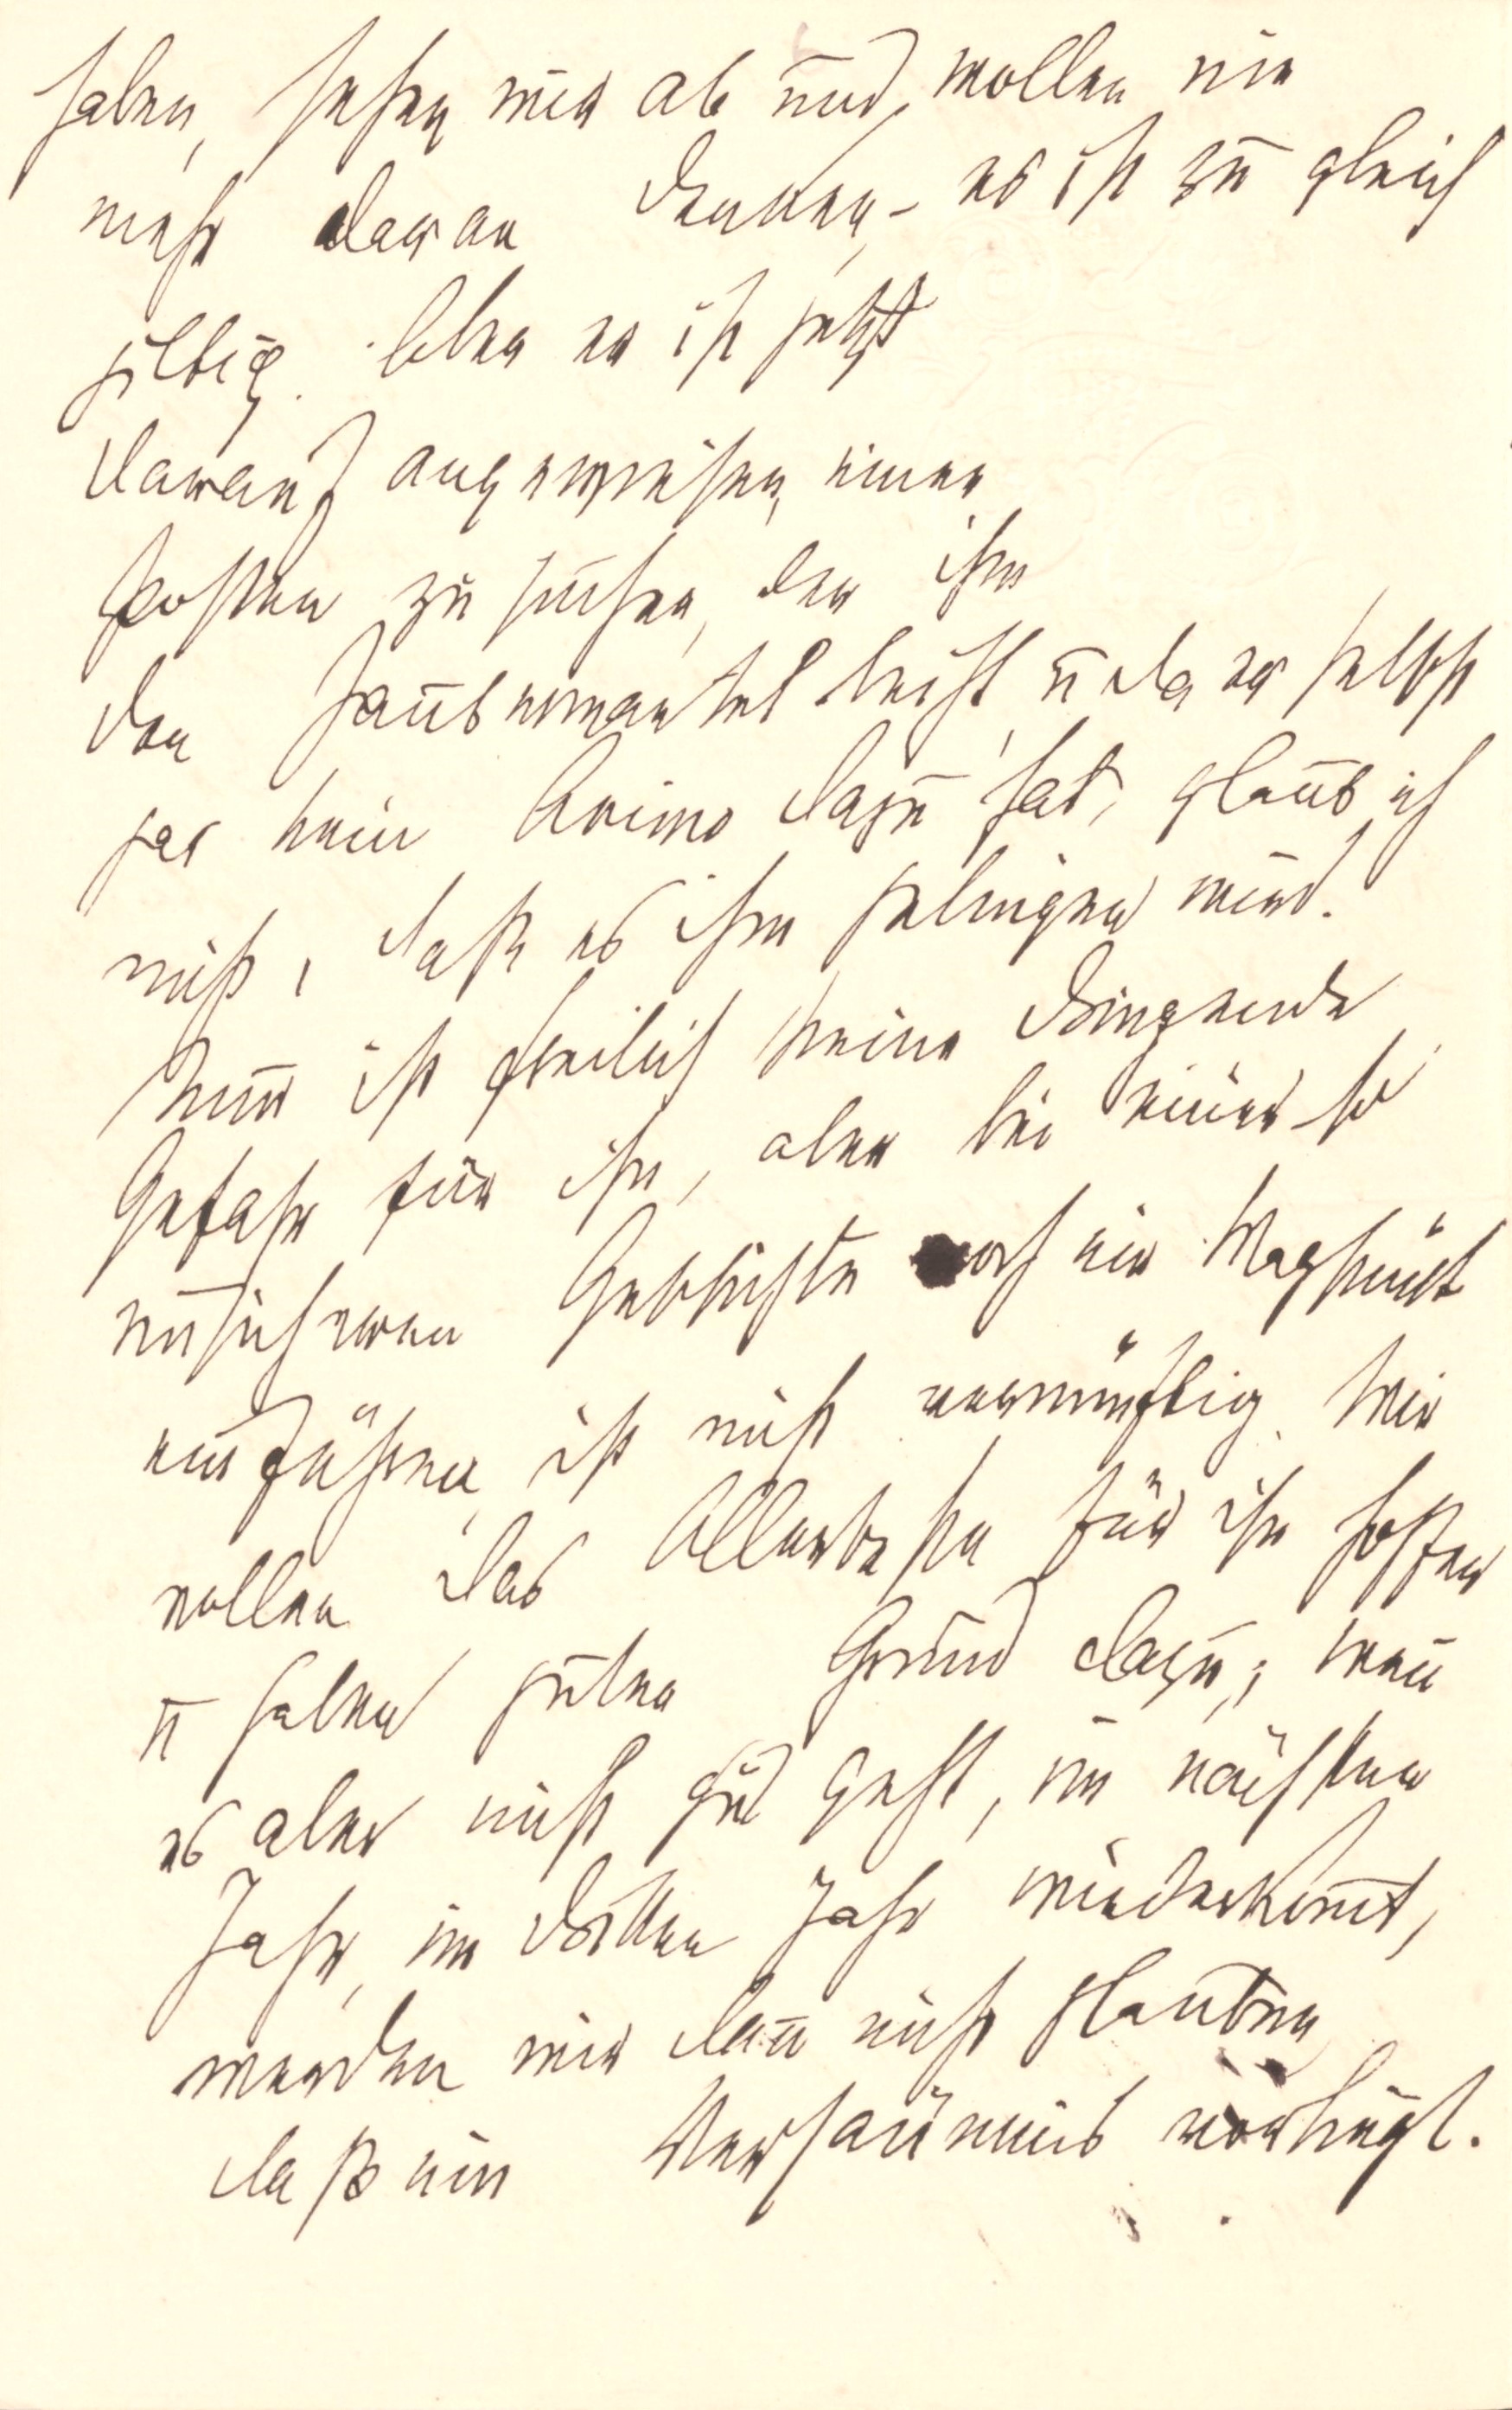 haben, sehen wir ab und wollen nie
mehr daran denken, – es ist zu gleich
giltig. Aber er ist jetzt
darauf angewiesen, einen
Posten zu suchen, der ihm
den Zaubermantel leiht, u da er selbst
gar kein Animo dazu hat, glaub ich
nicht, daß es ihm gelingen wird.
Nun ist freilich keine dringende
Gefahr für ihn, aber bei einer so
unsicheren Geschichte noch ein Wagstück
auszuführen, ist nicht vernünftig. Wir
wollen das Allerbeste für ihn hoffen
u haben guten Grund dazu; wen̄
es aber nicht gut geht, im nächsten
Jahr, im dritten Jahr wiederkom̄t,
werden wir dan̄ nicht glauben,
daß ein Versäumnis vorliegt.